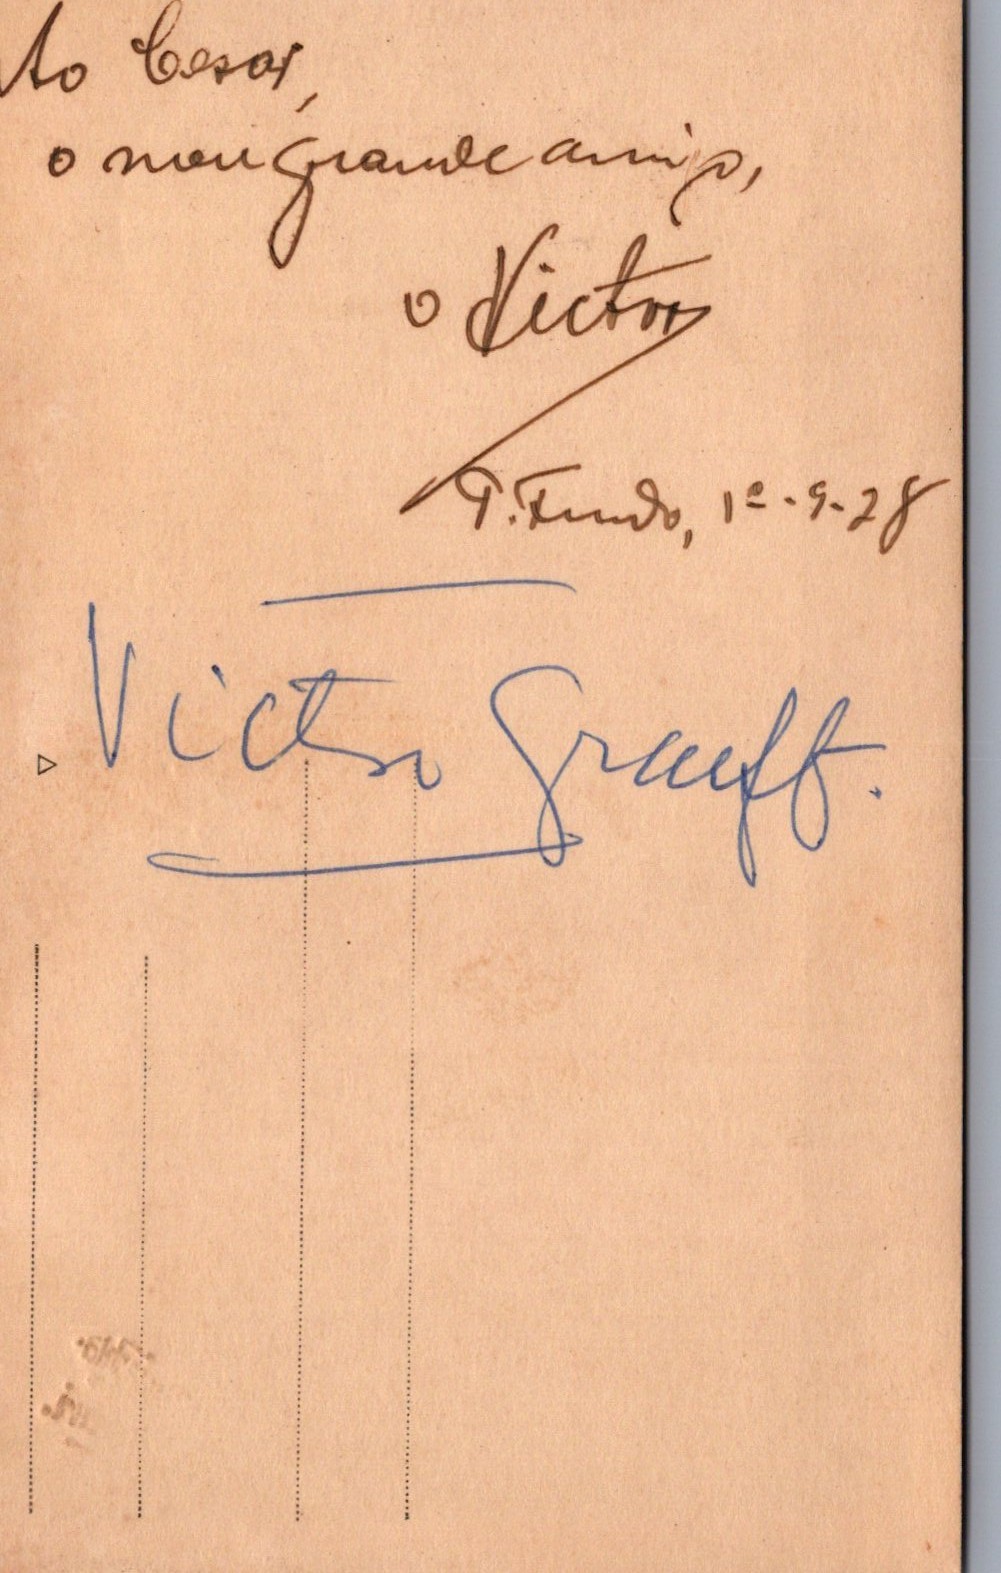 Ao Cesar,
o meu grande amigo,
o Victor
P. Fundo, 1º-9-28
Victor Graeff.